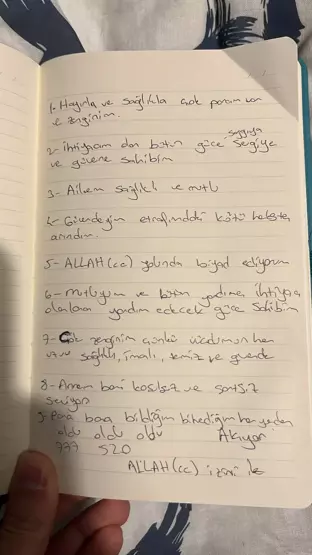 1- Hayırla ve sağlıkla çok param var
ve zenginim.
2- ihtiyacım olan bütün güce saygıya sevgiye
ve güvene sahibim
3- Ailem sağlıklı ve mutlu
4- Güvendeyim etrafımdaki kötü herkesten
arındım.
5- ALLAH (cc) yolunda ediyorum
6- mutluyum ve bütün yardıma ihtiyacı
olanlara yardım edecek güce sahibim
7- Çok zenginim çünkü vücudumun her
sağlıklı, temiz ve güvende
8- Annem beni koşulsuz ve şartsız
seviyor
9- Para bana bildiğim bilmediğim her yerden
oldu oldu oldu Akıyor
777 520
ALLAH (cc) izni ile